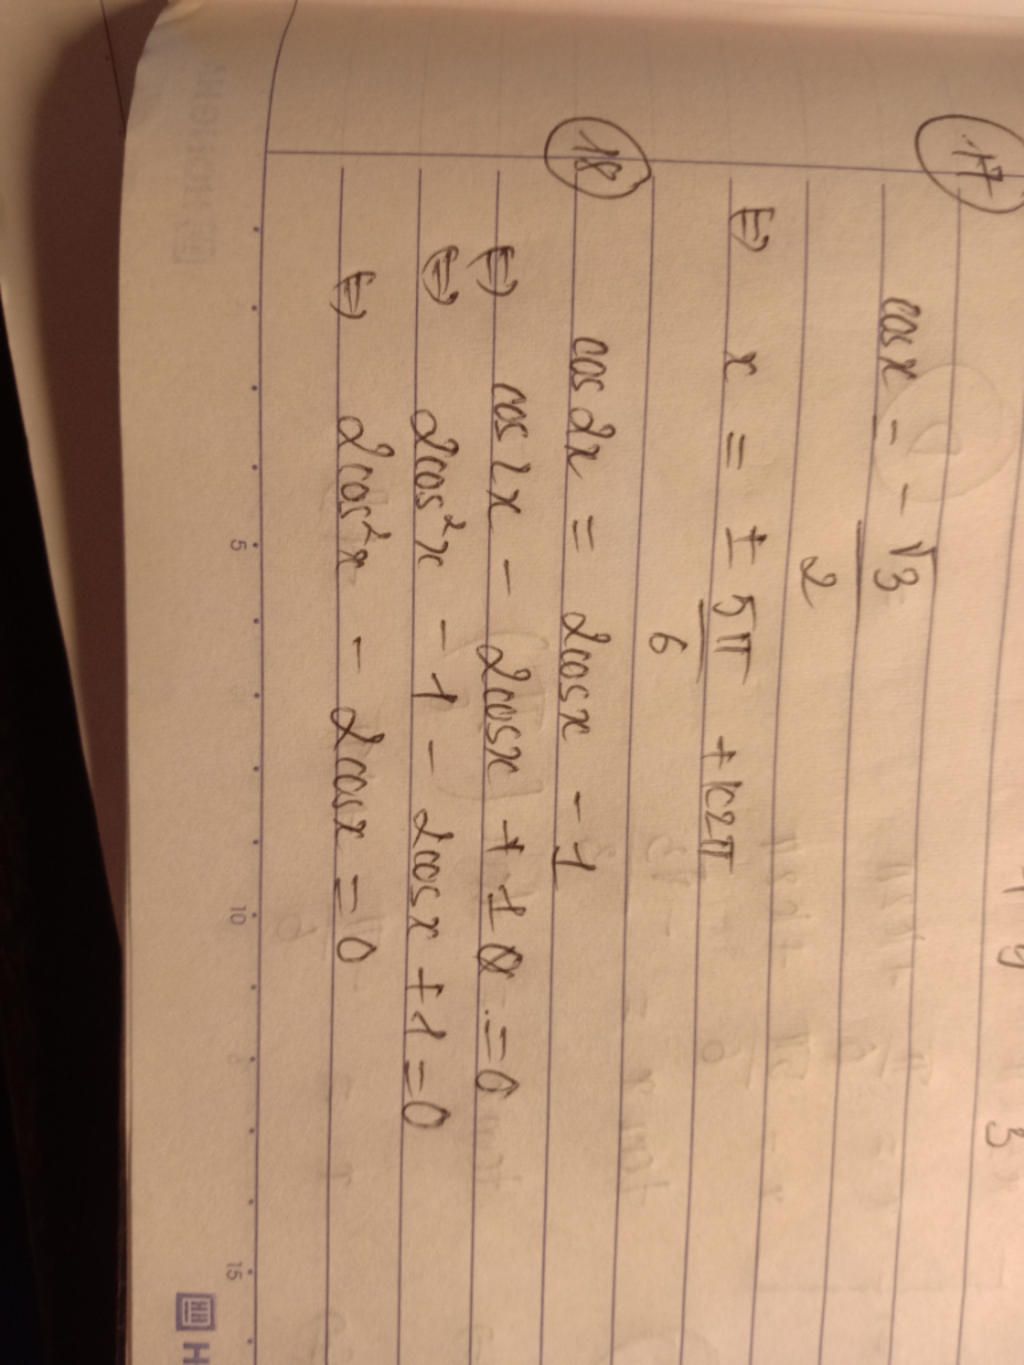 17
cosx = - √3
2
⇔ x = ± 5π + k2π
6
18
cos2x = 2cosx - 1
⇔ cos2x - 2cosx + 1 = 0
⇔ 2cos²x - 1 - 2cosx + 1 = 0
⇔ 2cos²x - 2cosx = 0
5 10 15